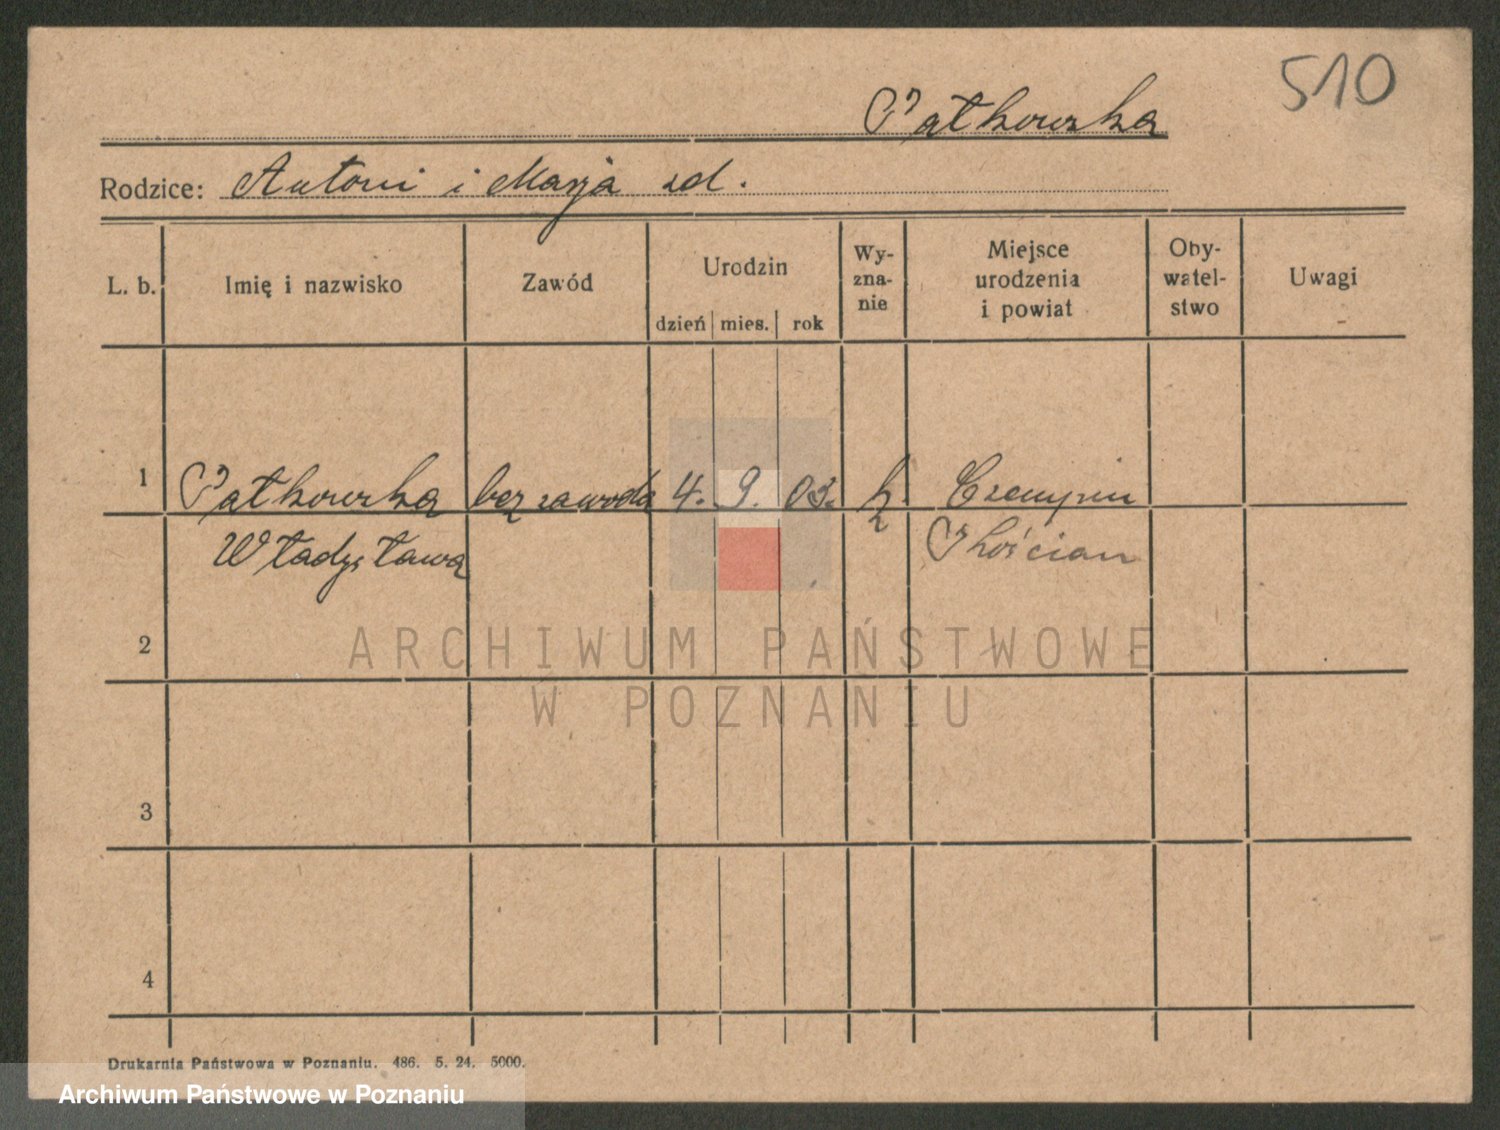 510
Patkowska
Rodzice: Antoni i Marja zd.
L. b. Imię i nazwisko Zawód Urodzin dzień mies. rok Wy-zna-nie Miejsce urodzenia i powiat Oby-watel-stwo Uwagi
1 Patkowska bez zawodu 4. 9. 03. k. Czempiń
Władysława Kościan
2
ARCHIWUM PAŃSTWOWE
W POZNANIU
3
4
Drukarnia Państwowa w Poznaniu. 486. 5. 24. 5000.
Archiwum Państwowe w Poznaniu